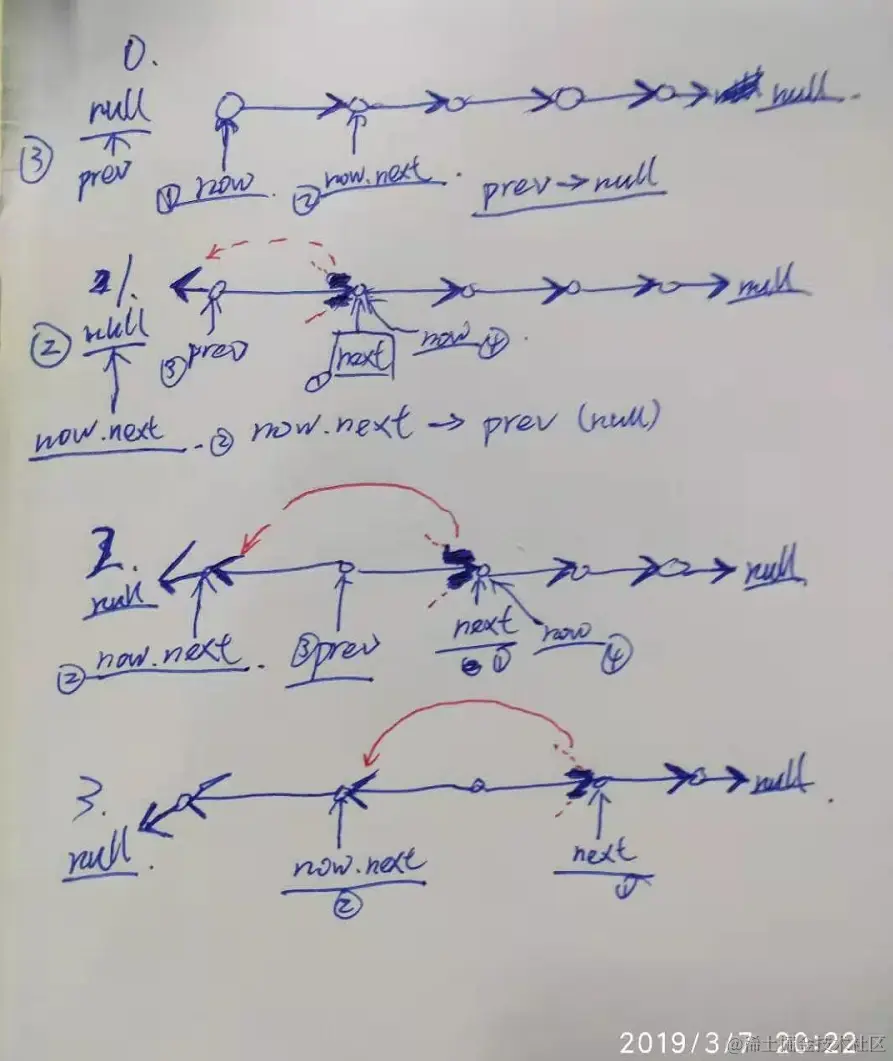 0.
null null.
③ prev ① now. ② now.next. prev→null
1.
② null null
③ prev ① next now ④.
now.next. ② now.next → prev (null)
2.
null null
② now.next. ③ prev next ① now ④
3.
null. null.
now.next next
② ①
2019/3/7 20:22
@稀土掘金技术社区